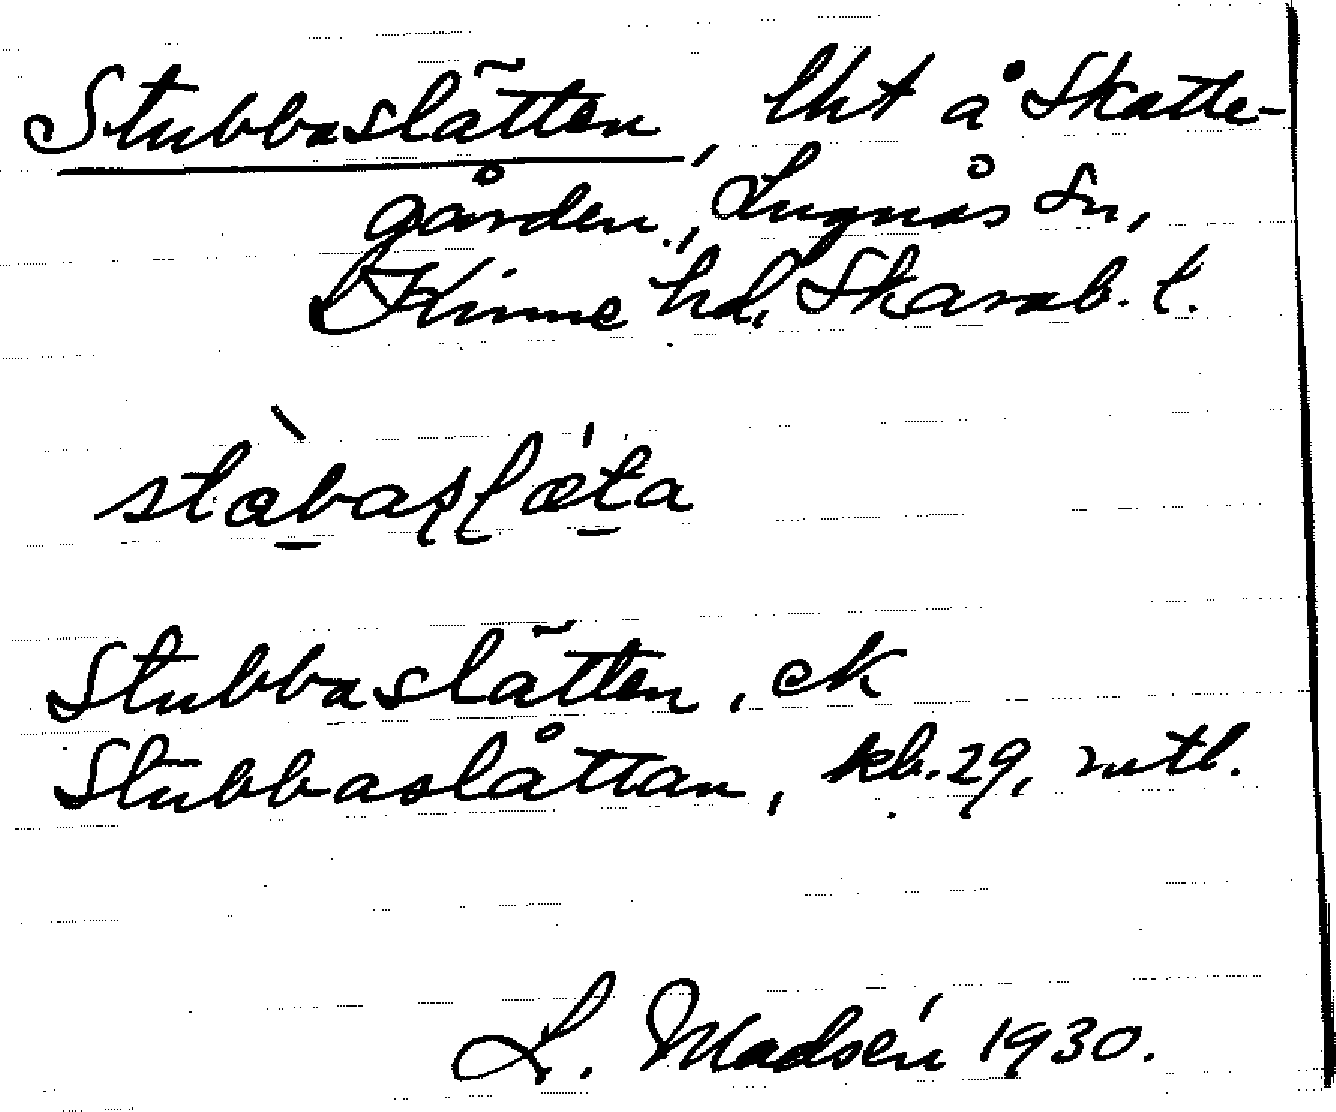 Stubbaslätten, lht å Skatte-
gården, Lugnås sn,
Kinne hd, Skarab. l.
stàbaslǽta
Stubbaslätten, ek
Stubbaslåttan, kb. 29, mtl.
L. Madsén 1930.